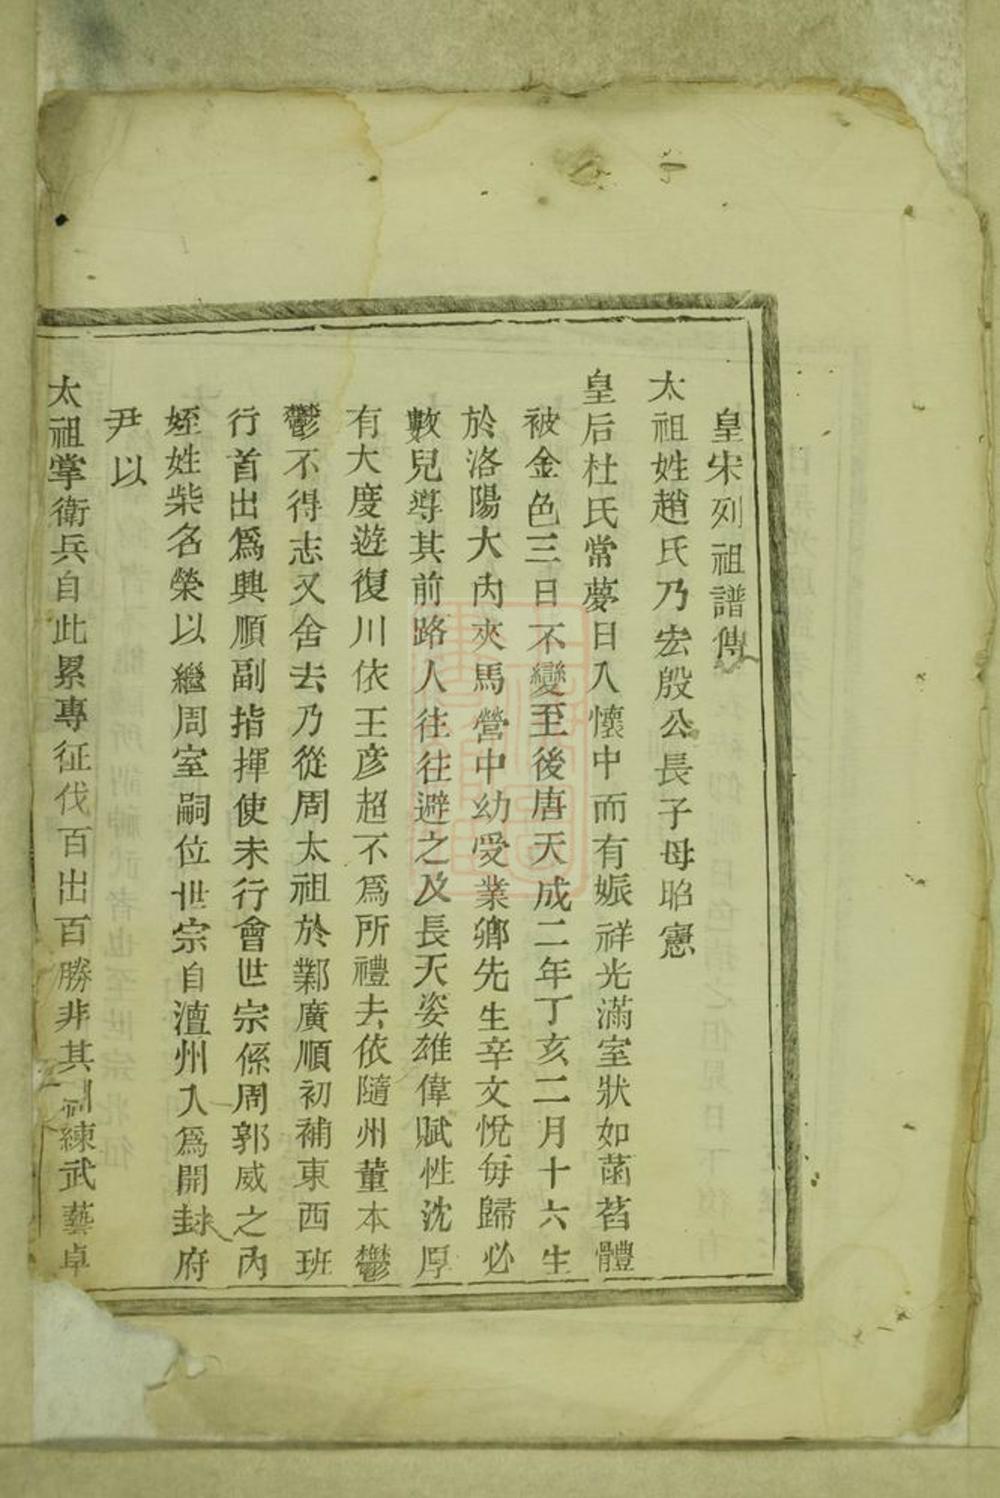 皇宋列祖譜傳
太祖姓趙氏乃宏殷公長子母昭憲
皇后杜氏常夢日入懷中而有娠祥光滿室狀如菡萏體
被金色三日不變至後唐天成二年丁亥二月十六生
於洛陽大內夾馬營中幼受業鄉先生辛文悅每歸必
數兒導其前路人往往避之及長天姿雄偉賦性沈厚
有大度遊復川依王彥超不為所禮去依隨州董本鬱
鬱不得志又舍去乃從周太祖於鄴廣順初補東西班
行首出為興順副指揮使未行會世宗係周郭威之內
姪姓柴名榮以繼周室嗣位世宗自澶州入為開封府
尹以
太祖掌衛兵自此累專征伐百出百勝非其訓練武藝卓